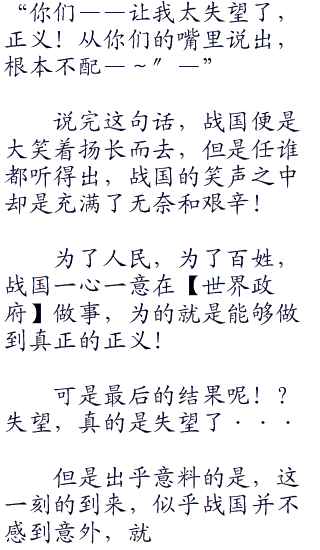 “你们——让我太失望了，
正义！从你们的嘴里说出，
根本不配—～〞—”
说完这句话，战国便是
大笑着扬长而去，但是任谁
都听得出，战国的笑声之中
却是充满了无奈和艰辛！
为了人民，为了百姓，
战国一心一意在【世界政
府】做事，为的就是能够做
到真正的正义！
可是最后的结果呢！？
失望，真的是失望了···
但是出乎意料的是，这
一刻的到来，似乎战国并不
感到意外，就